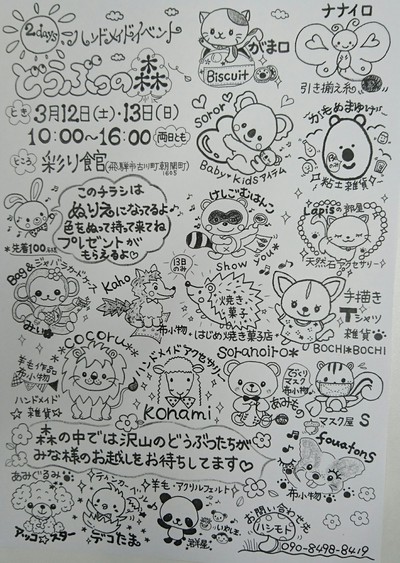 2days
ハンドメイドイベント
どうぶつの森
とき 3月12日(土)・13日(日)
10:00~16:00 両日とも
ところ 彩り館(飛騨市古川町朝開町
このチラシは
ぬりえになってるよ♪
色をぬって持って来てね
プレゼントが
もらえるよ♡
*先着100名様
がま口
Biscuit
ナナイロ
引き揃え糸
soror
Baby*Kidsアイテム
かもめまゆげ
粘土雑貨
けしごむはんこ
show you*
Lapisの部屋
天然石アクセサリー
Bag&ジャパンラグドプラス
みい
Kaho
布小物
13日のみ
焼き菓子
はじめ焼き菓子店
手描き
Tシャツ
雑貨
BOCHI*BOCHI
羊毛作品
布小物
cocoru*
ハンドメイド
雑貨
ハンドメイドアクセサリー
Konami
soranoiro*
あみもの
手づくり
マスク
布小物
マスク屋 S
森の中では沢山のどうぶつたちが
みな様のお越しをお待ちしてます♡
fouatons
布小物
あみぐるみ
アッコ☆スター
ティンカーベル
デコたま
羊毛・アクリルフェルト
お問い合わせ
ハシモト
090-8498-8419